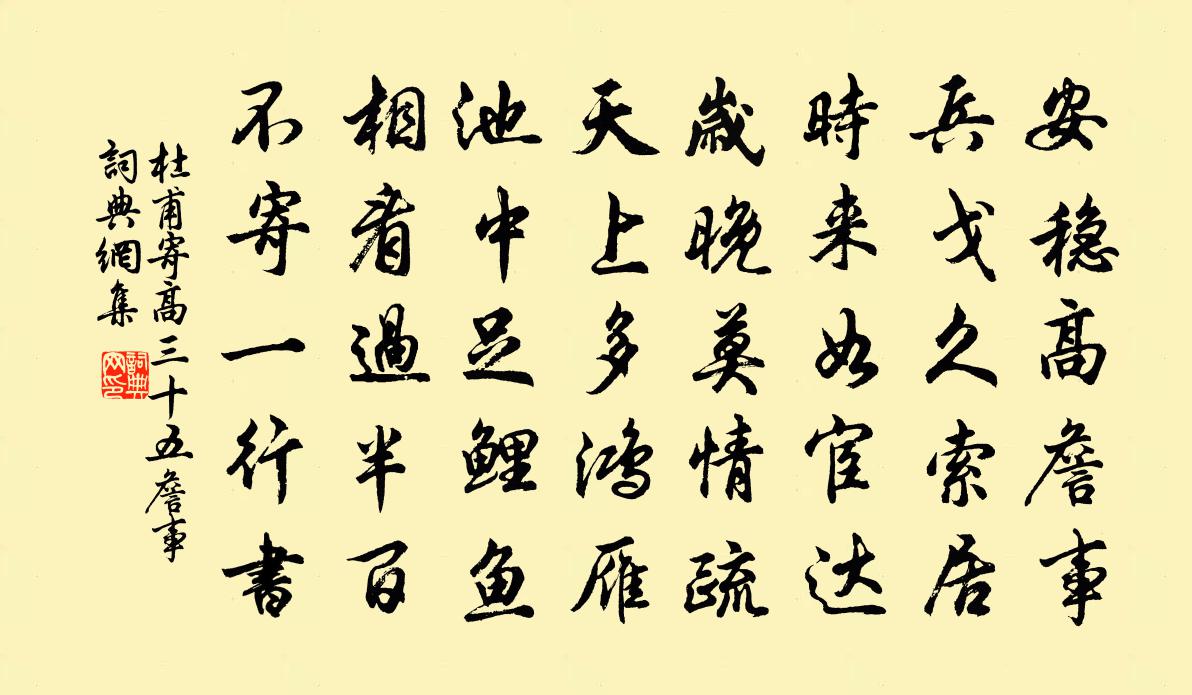 安稳高詹事
兵戈久索居
時来如宦达
歲晚莫情疏
天上多鸿雁
池中足鲤鱼
相看過半百
不寄一行書
杜甫寄高三十五詹事
詞典網集
詞典网印